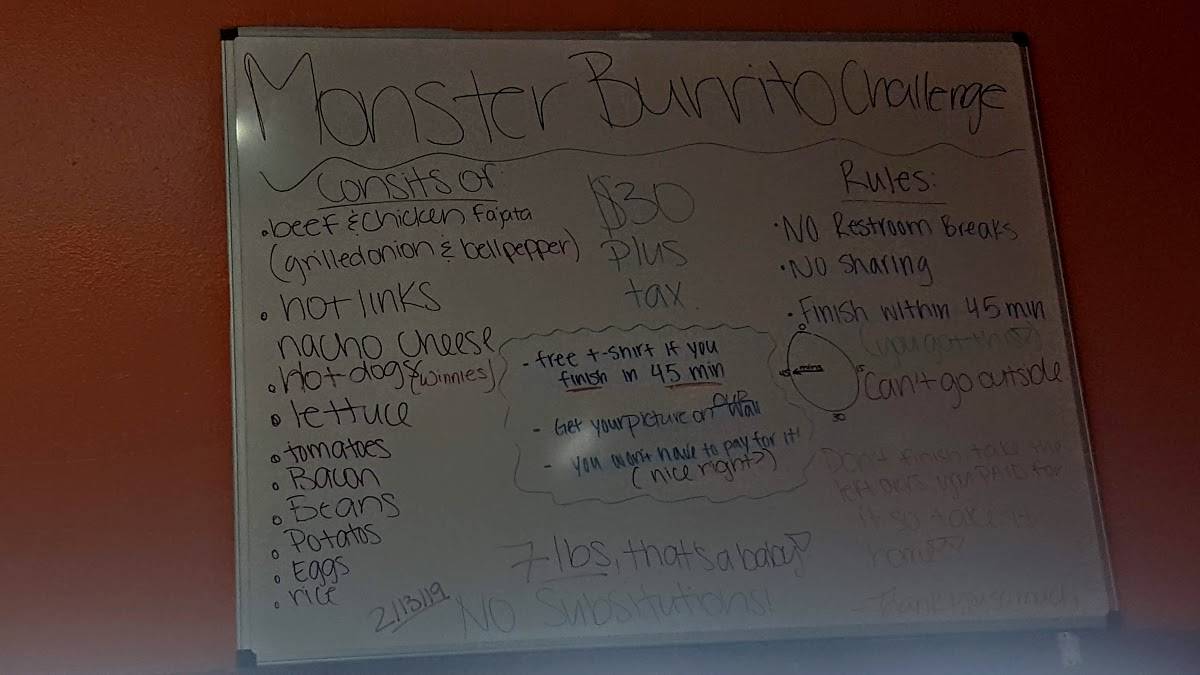 Monster Burrito Challenge
Consits of
• beef & chicken fajata
(grilled onion & bellpepper)
• hot links
nacho cheese
• Hot dogs (winnies)
• lettuce
• tomatoes
• Bacon
• Beans
• Potatos
• Eggs
• rice
2/13/19
$30
plus
tax
- free t-shirt if you
finish in 45 min
- Get your picture on OUR wall
- you wont have to pay for it!
(nice right?)
7 lbs, that's a baby
NO Substitutions!
Rules:
• NO Restroom Breaks
• No sharing
• Finish within 45 min
(you got this)
15
30
Can't go outside
Don't finish take the
left overs, you PAID for
it so take it
home
Thank you so much